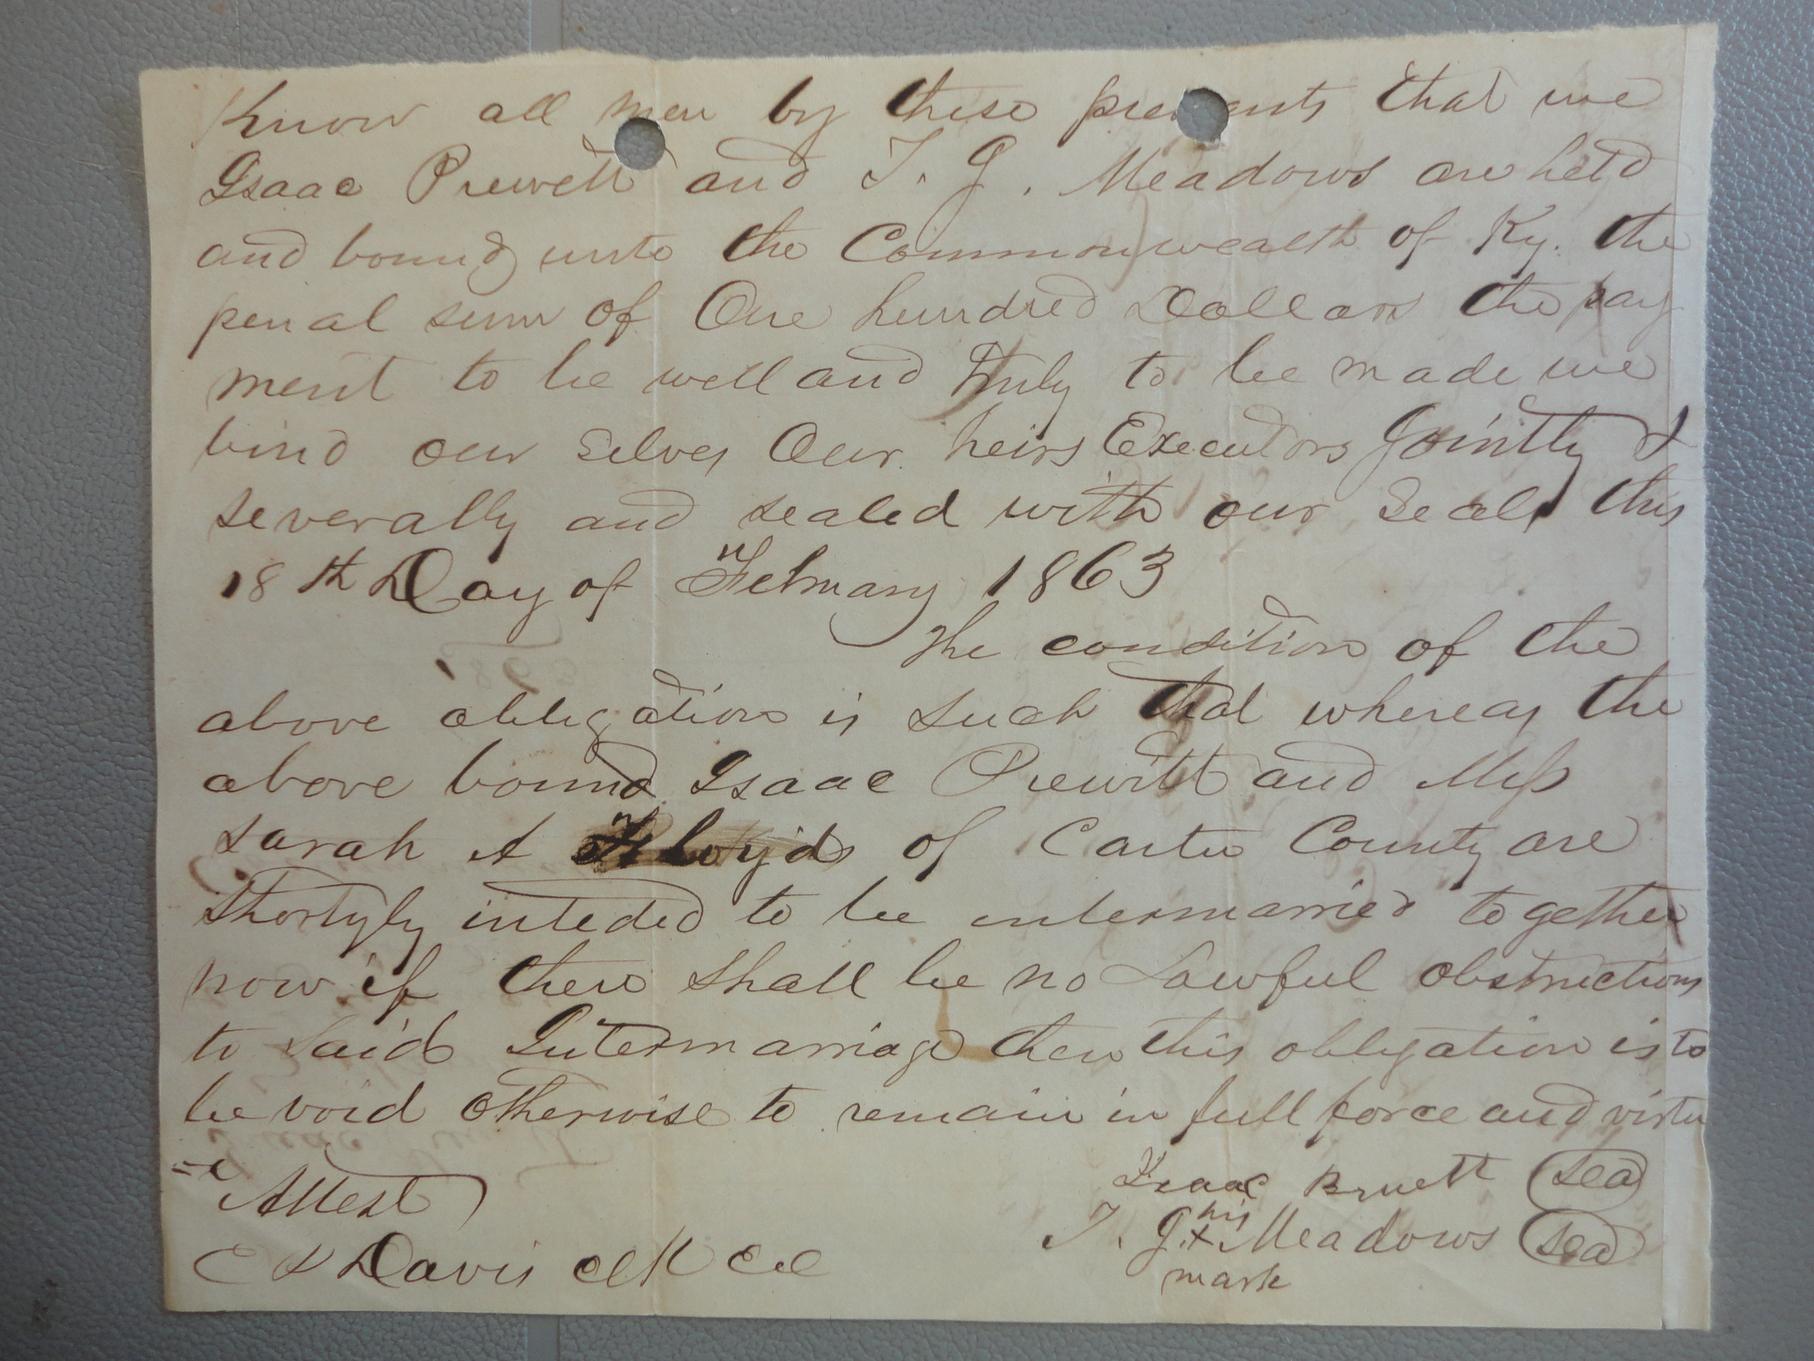 Know all men by these presents that we
Isaac Prewett and T. G. Meadows are held
and bound unto the Commonwealth of Ky. the
penal sum of One hundred Dollars the pay
ment to be well and truly to be made we
bind our selves Our heirs Executors Jointly &
severally and sealed with our Seals this
18th Day of February 1863
The condition of the
above obligation is such that whereas the
above bound Isaac Prewitt and Miss
Sarah A Floyd of Carter County are
Shortyly inteded to be intermarried together
now if there shall be no Lawful obstructions
to Said Intermarriage then this obligation is to
be void otherwise to remain in full force and virtu
=e
Attest
Isaac Bruett Seal
T. G. his x mark Meadows Seal
Davis